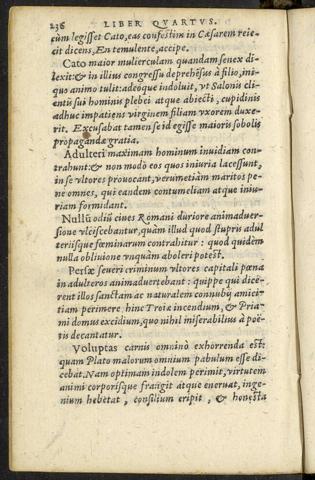 236 LIBER QVARTVS.
cùm legisset Cato, eas confestim in Cæsarem reie-
cit dicens, En temulente, accipe.
Cato maior mulierculam quandam senex di-
lexit: & in illius congressu deprehẽsus à filio, ini-
quo animo tulit: adeoque indoluit, vt Salonis cli-
entis sui hominis plebei atque abiecti, cupidinis
adhuc impatiens virginem filiam vxorem duxe-
rit. Excusabat tamen se id egisse maioris sobolis
propagandæ gratia.
Adulteri maximam hominum inuidiam con-
trahunt: & non modò eos quos iniuria lacessunt,
in se vltores prouocant, verumetiàm maritos pe-
ne omnes, qui eandem contumeliam atque iniu-
riam formidant.
Nullũ odiũ ciues Romani duriore animaduer-
sione vlciscebantur, quàm illud quod stupris adul
teriisque fœminarum contrahitur: quod quidem
nulla obliuione vnquàm aboleri potest.
Persæ seueri criminum vltores capitali pœna
in adulteros animaduertebant: quippe qui dice-
rent illos sanctam ac naturalem connubij amici-
tiam perimere, hinc Troiæ incendium, & Pria-
mi domus excidium, quo nihil miserabilius à poë-
tis decantatur.
Voluptas carnis omninò exhorrenda est:
quam Plato malorum omnium pabulum esse di-
cebat. Nam optimam indolem perimit, virtutem
animi corporisque frangit atque eneruat, inge-
nium hebetat, consilium eripit, & honesta